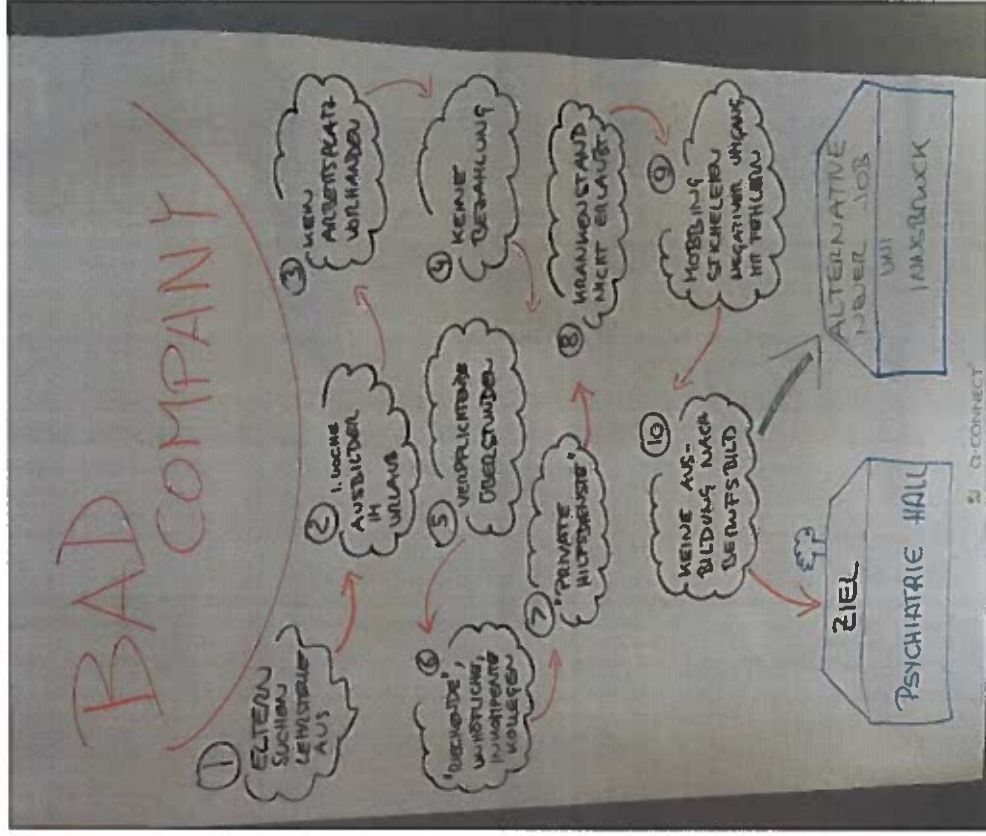 BAD
COMPANY
1
ELTERN
SUCHEN
LEHRSTELLE
AUS
2
1. WOCHE
AUSBILDER
IM
URLAUB
3
KEIN
ARBEITSPLATZ
VORHANDEN
4
KEINE
BEZAHLUNG
5
VERPFLICHTENDE
ÜBERSTUNDEN
6
UNHÖFLICHE,
KOLLEGEN
7
"PRIVATE
HILFSDIENSTE"
8
KRANKENSTAND
NICHT ERLAUBT
9
MOBBING
STICHELEIEN
NEGATIVER UMGANG
MIT FEHLERN
10
KEINE AUS-
BILDUNG NACH
BERUFSBILD
ZIEL
PSYCHIATRIE HALL
ALTERNATIVE
NEUER JOB
UNI
INNSBRUCK
Q-CONNECT